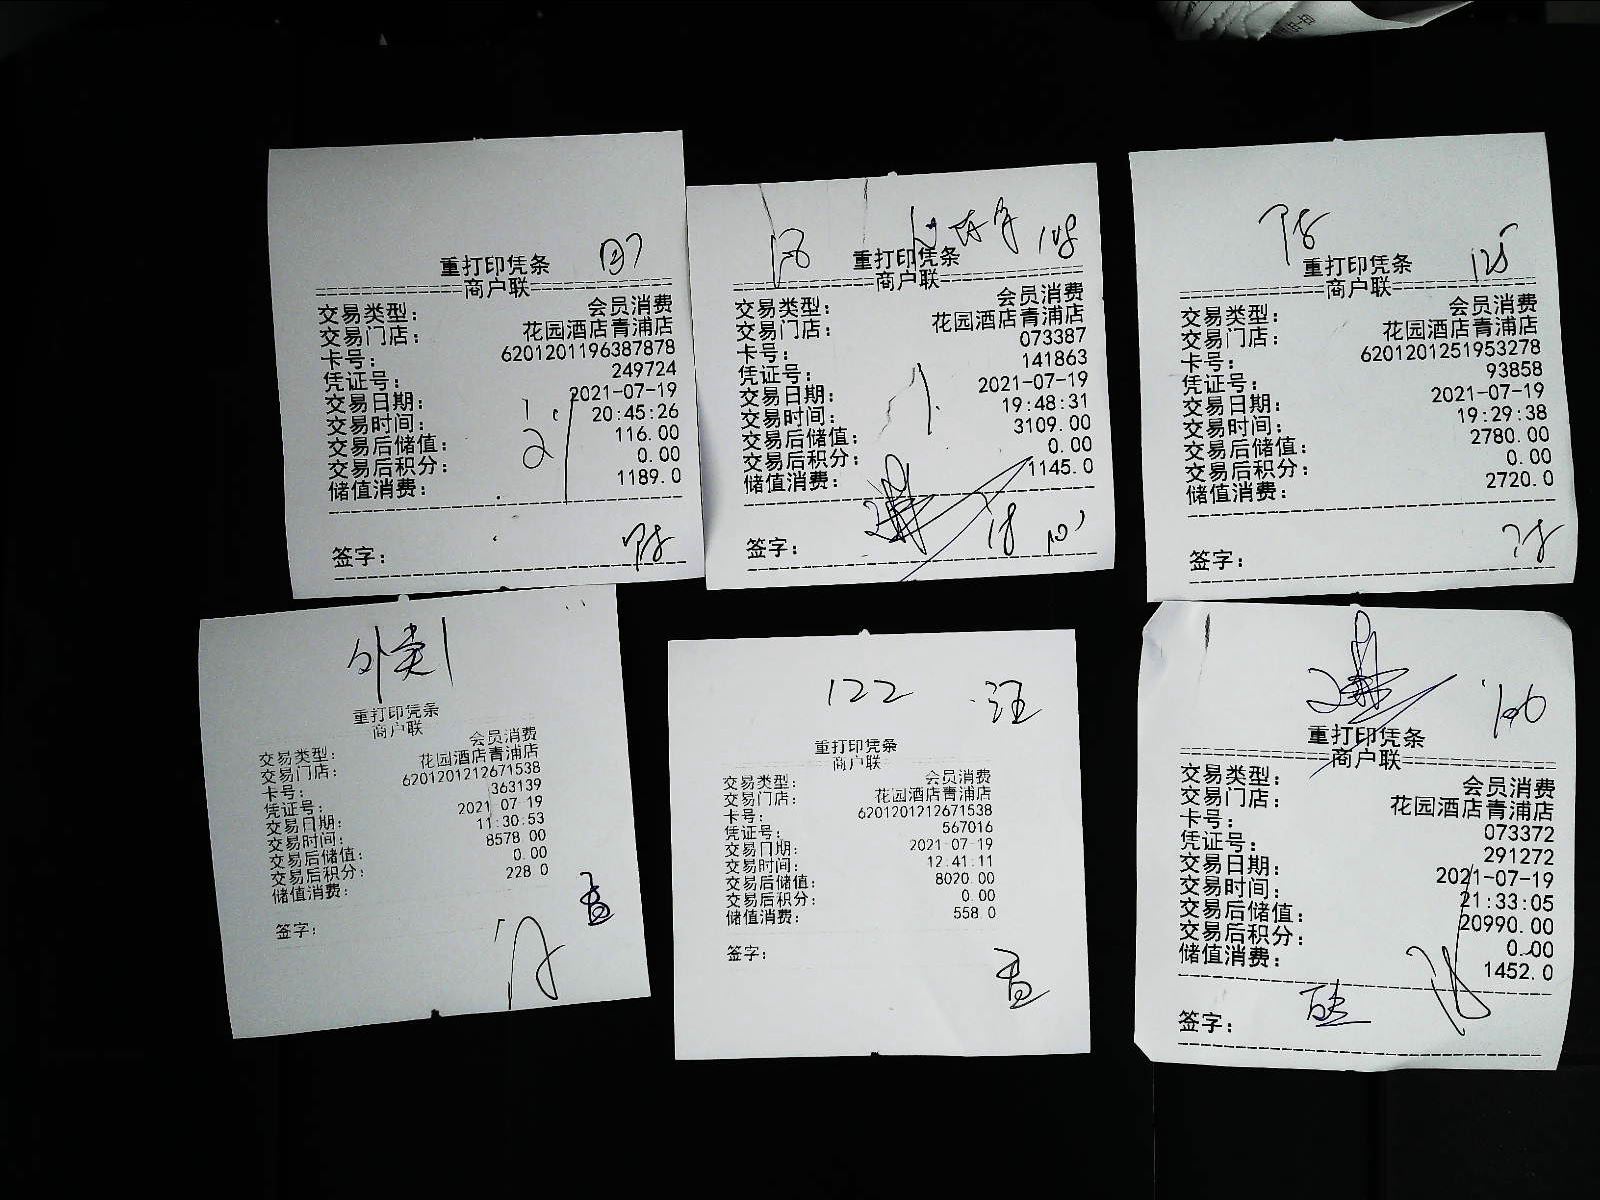 137
重打印凭条
商户联
交易类型： 会员消费
交易门店： 花园酒店青浦店
卡号： 6201201196387878
凭证号： 249724
交易日期： 2021-07-19
交易时间： 20:45:26
交易后储值： 116.00
交易后积分： 0.00
储值消费： 1189.0
签字：
108
重打印凭条
商户联
交易类型： 会员消费
交易门店： 花园酒店青浦店
卡号： 073387
凭证号： 141863
交易日期： 2021-07-19
交易时间： 19:48:31
交易后储值： 3109.00
交易后积分： 0.00
储值消费： 1145.0
签字：
125
重打印凭条
商户联
交易类型： 会员消费
交易门店： 花园酒店青浦店
卡号： 6201201251953278
凭证号： 93858
交易日期： 2021-07-19
交易时间： 19:29:38
交易后储值： 2780.00
交易后积分： 0.00
储值消费： 2720.0
签字：
外卖1
重打印凭条
商户联
交易类型： 会员消费
交易门店： 花园酒店青浦店
卡号： 6201201212671538
凭证号： 363139
交易日期： 2021-07-19
交易时间： 11:30:53
交易后储值： 8578.00
交易后积分： 0.00
储值消费： 228.0
签字：
122 汪
重打印凭条
商户联
交易类型： 会员消费
交易门店： 花园酒店青浦店
卡号： 6201201212671538
凭证号： 567016
交易日期： 2021-07-19
交易时间： 12:41:11
交易后储值： 8020.00
交易后积分： 0.00
储值消费： 558.0
签字：
重打印凭条
商户联
交易类型： 会员消费
交易门店： 花园酒店青浦店
卡号： 073372
凭证号： 291272
交易日期： 2021-07-19
交易时间： 21:33:05
交易后储值： 20990.00
交易后积分： 0.00
储值消费： 1452.0
签字：